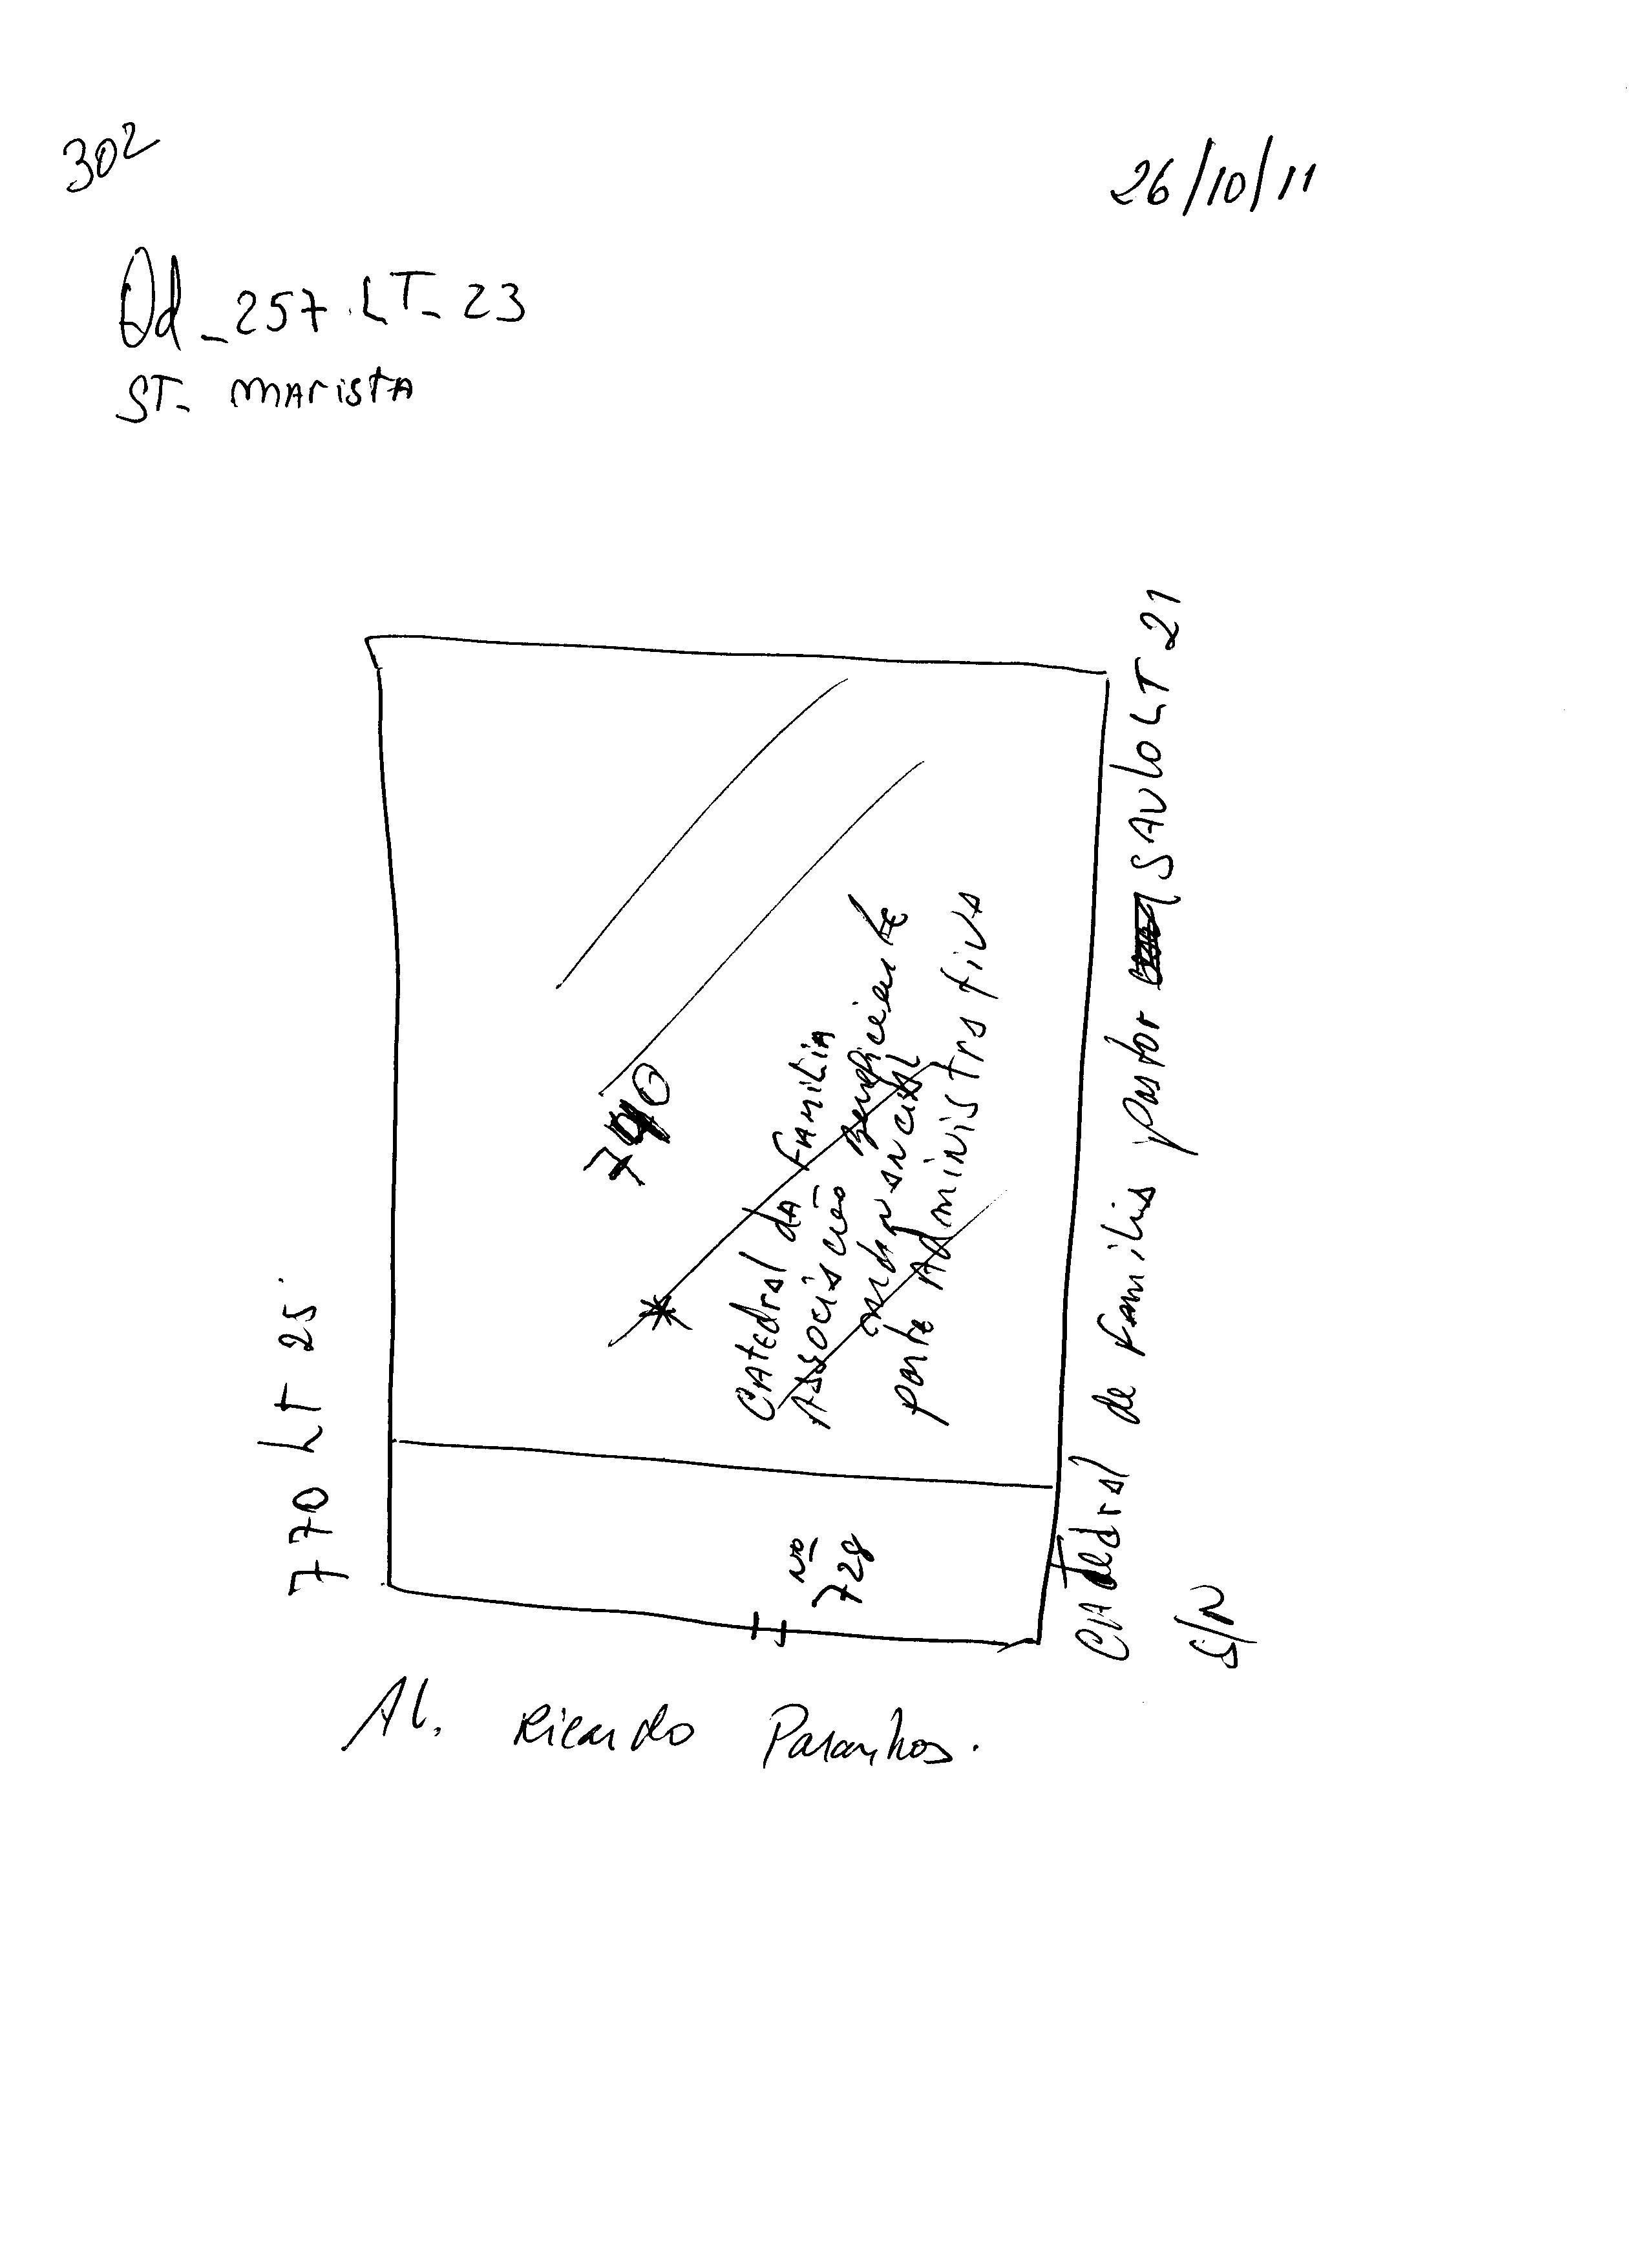 302
26/10/11
Qd_257.LT_23
ST_ MAristA
770 LT 25
740
CAtEdral dA fAMiliA
Associação Beneficiente
parte Administrativa
Nº
728
CATedral de Familia pastor SAulo LT 21
S/N
Al. Ricardo Paranhos.